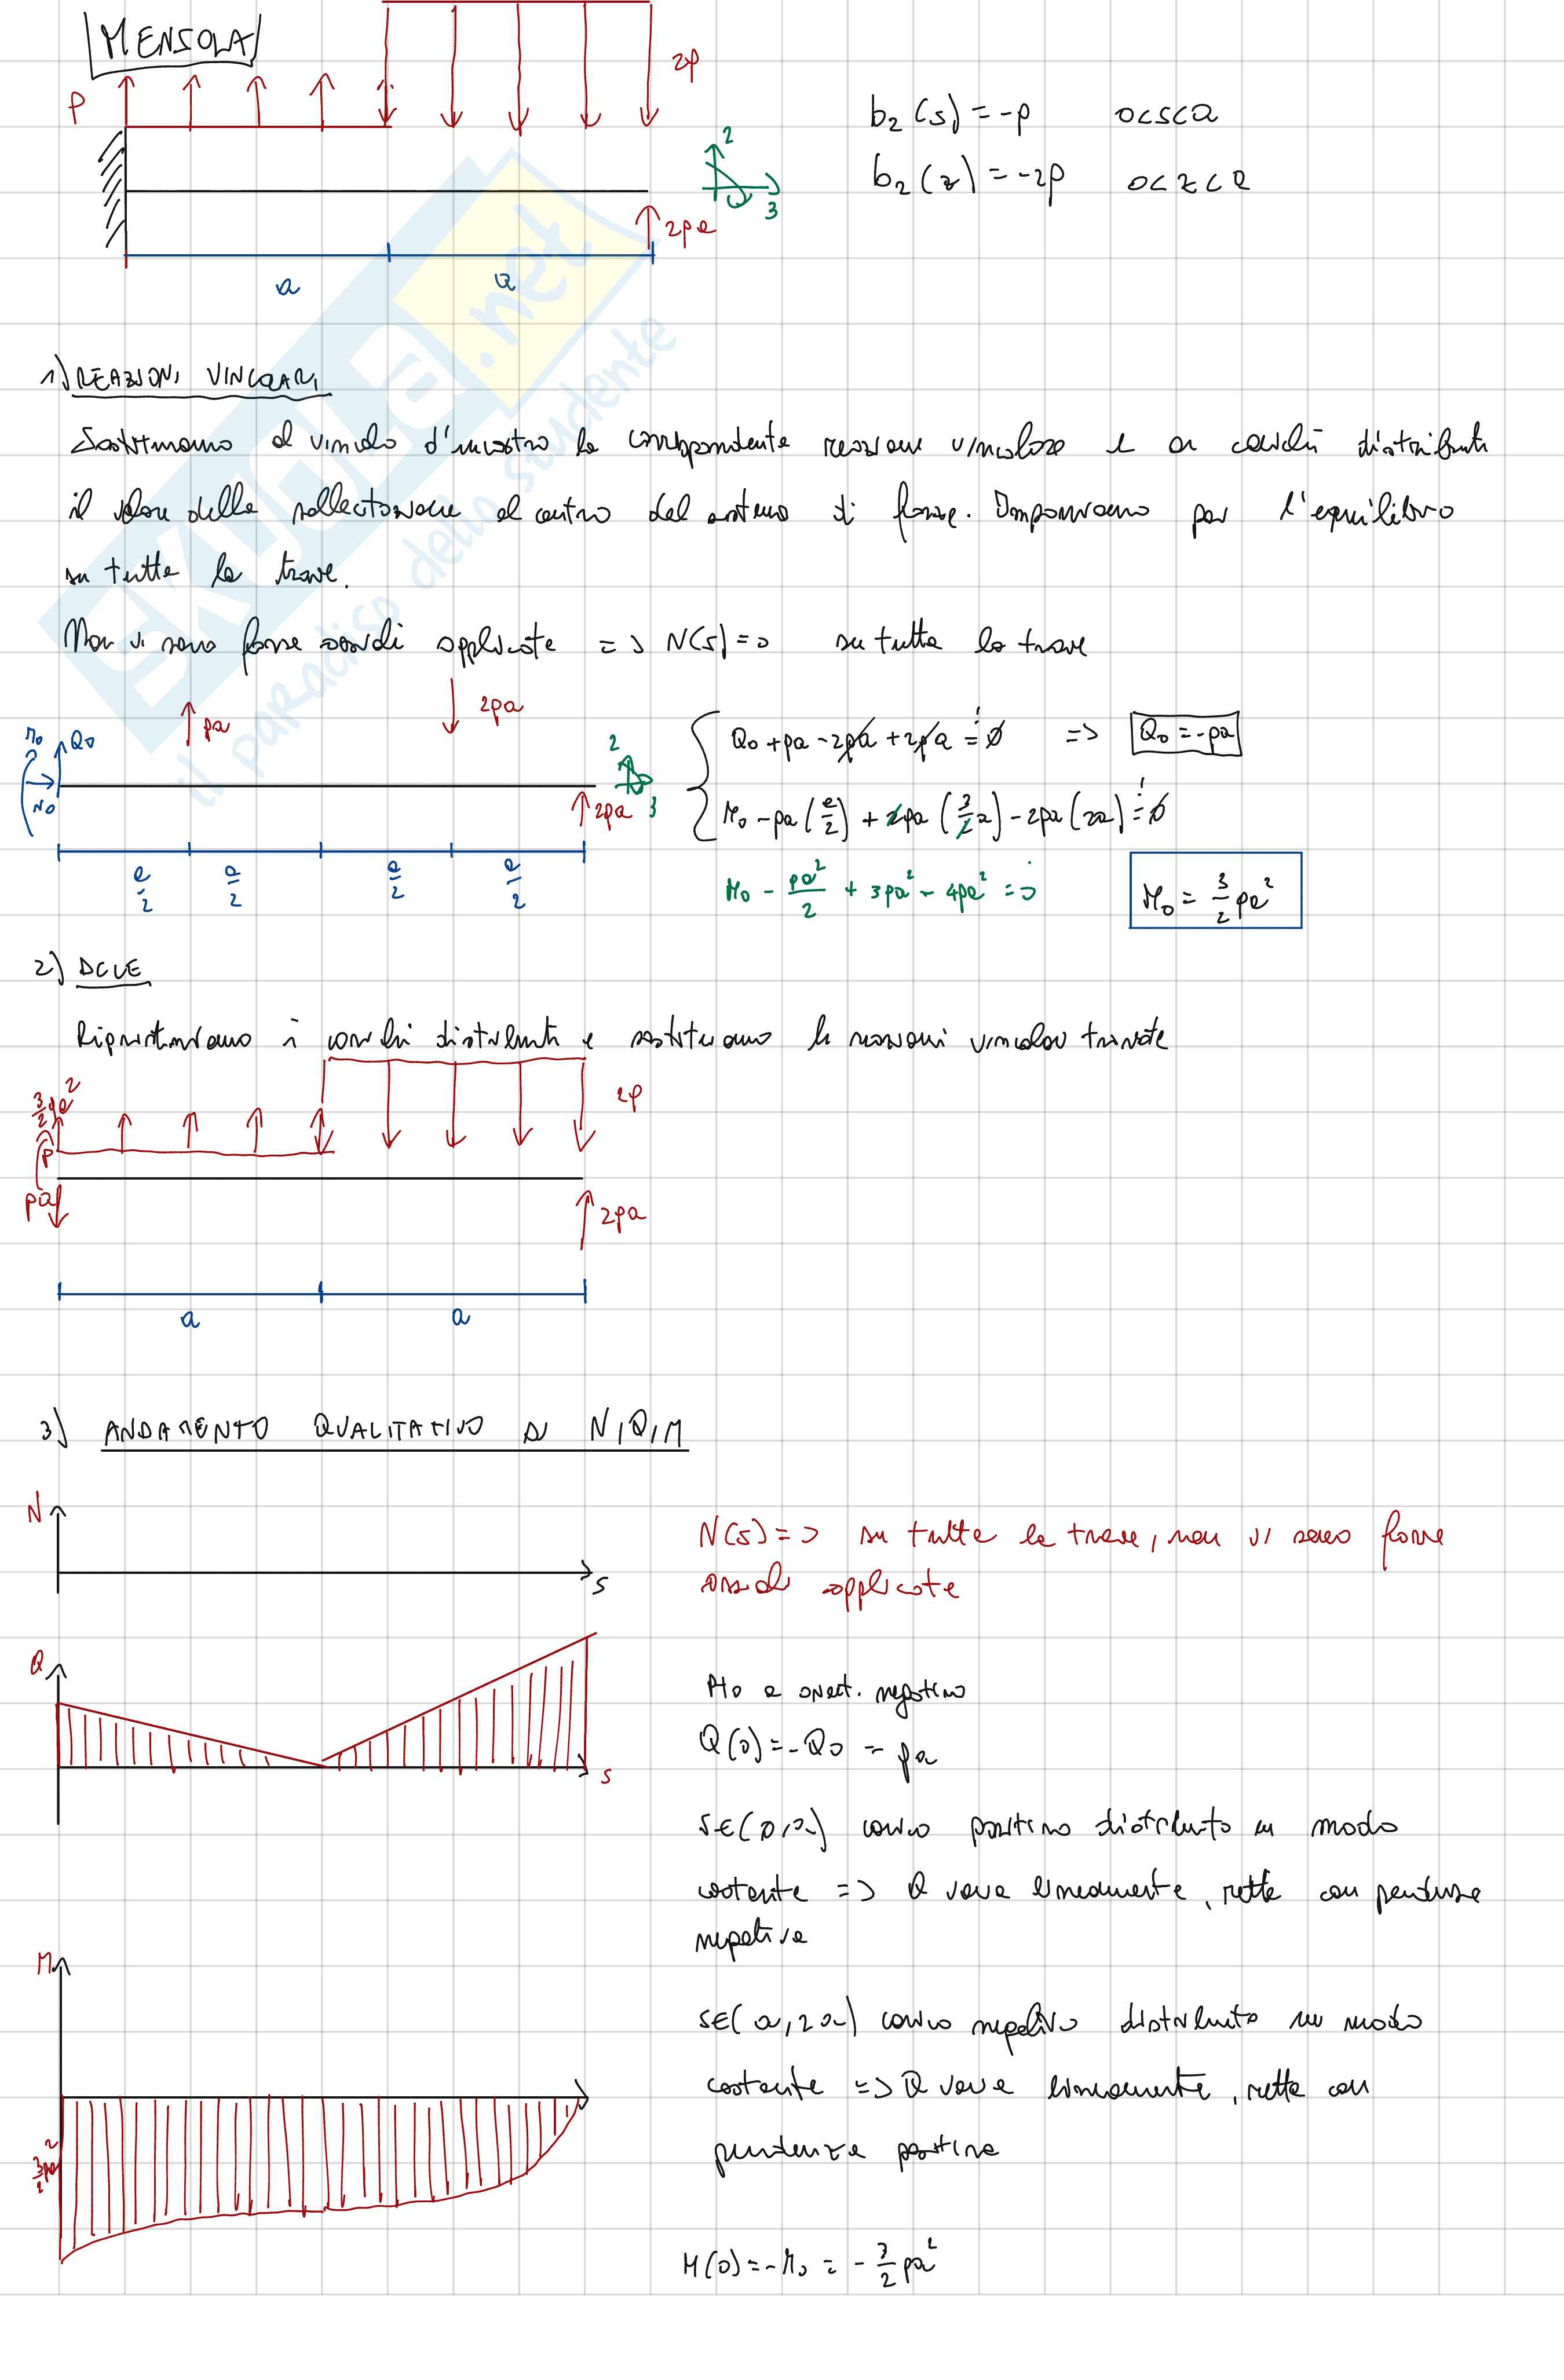 MENSOLA
p
2p
b₂(s) = -p    0<s<a
b₂(z) = -2p    0<z<a
2
3
2pa
a
a
1) REAZIONI VINCOLARI
Sostituiamo al vincolo d'incastro la corrispondente reazione vincolare e ai carichi distribuiti
il valore della sollecitazione al centro del sistema di forze. Imponiamo poi l'equilibrio
su tutta la trave.
Non vi sono forze assiali applicate => N(s)=0    su tutta la trave
M0
Q0
N0
pa
2pa
2
3
2pa
a/2
a/2
a/2
a/2
Q0 + pa - 2pa + 2pa = 0    =>    Q0 = -pa
M0 - pa (a/2) + 2pa (3/2 a) - 2pa (2a) = 0
M0 - pa²/2 + 3pa² - 4pa² = 0
M0 = 3/2 pa²
2) DCLE
Ripristiniamo i carichi distribuiti e sostituiamo le reazioni vincolari trovate
3/2 pa²
p
2p
pa
2pa
a
a
3) ANDAMENTO QUALITATIVO DI N,Q,M
N
s
N(s)=0 su tutta la trave, non vi sono forze
assiali applicate
Q
s
negativo
Q(0) = -Q0 = pa
s∈(0,a) carico positivo distribuito in modo
costante => Q varia linearmente, retta con pendenza
negativa
M
3/2 pa²
s∈(a,2a) carico negativo distribuito in modo
costante => Q varia linearmente, retta con
pendenza positiva
M(0) = -M0 = -3/2 pa²
SKUOLA.net
il paradiso dello studente